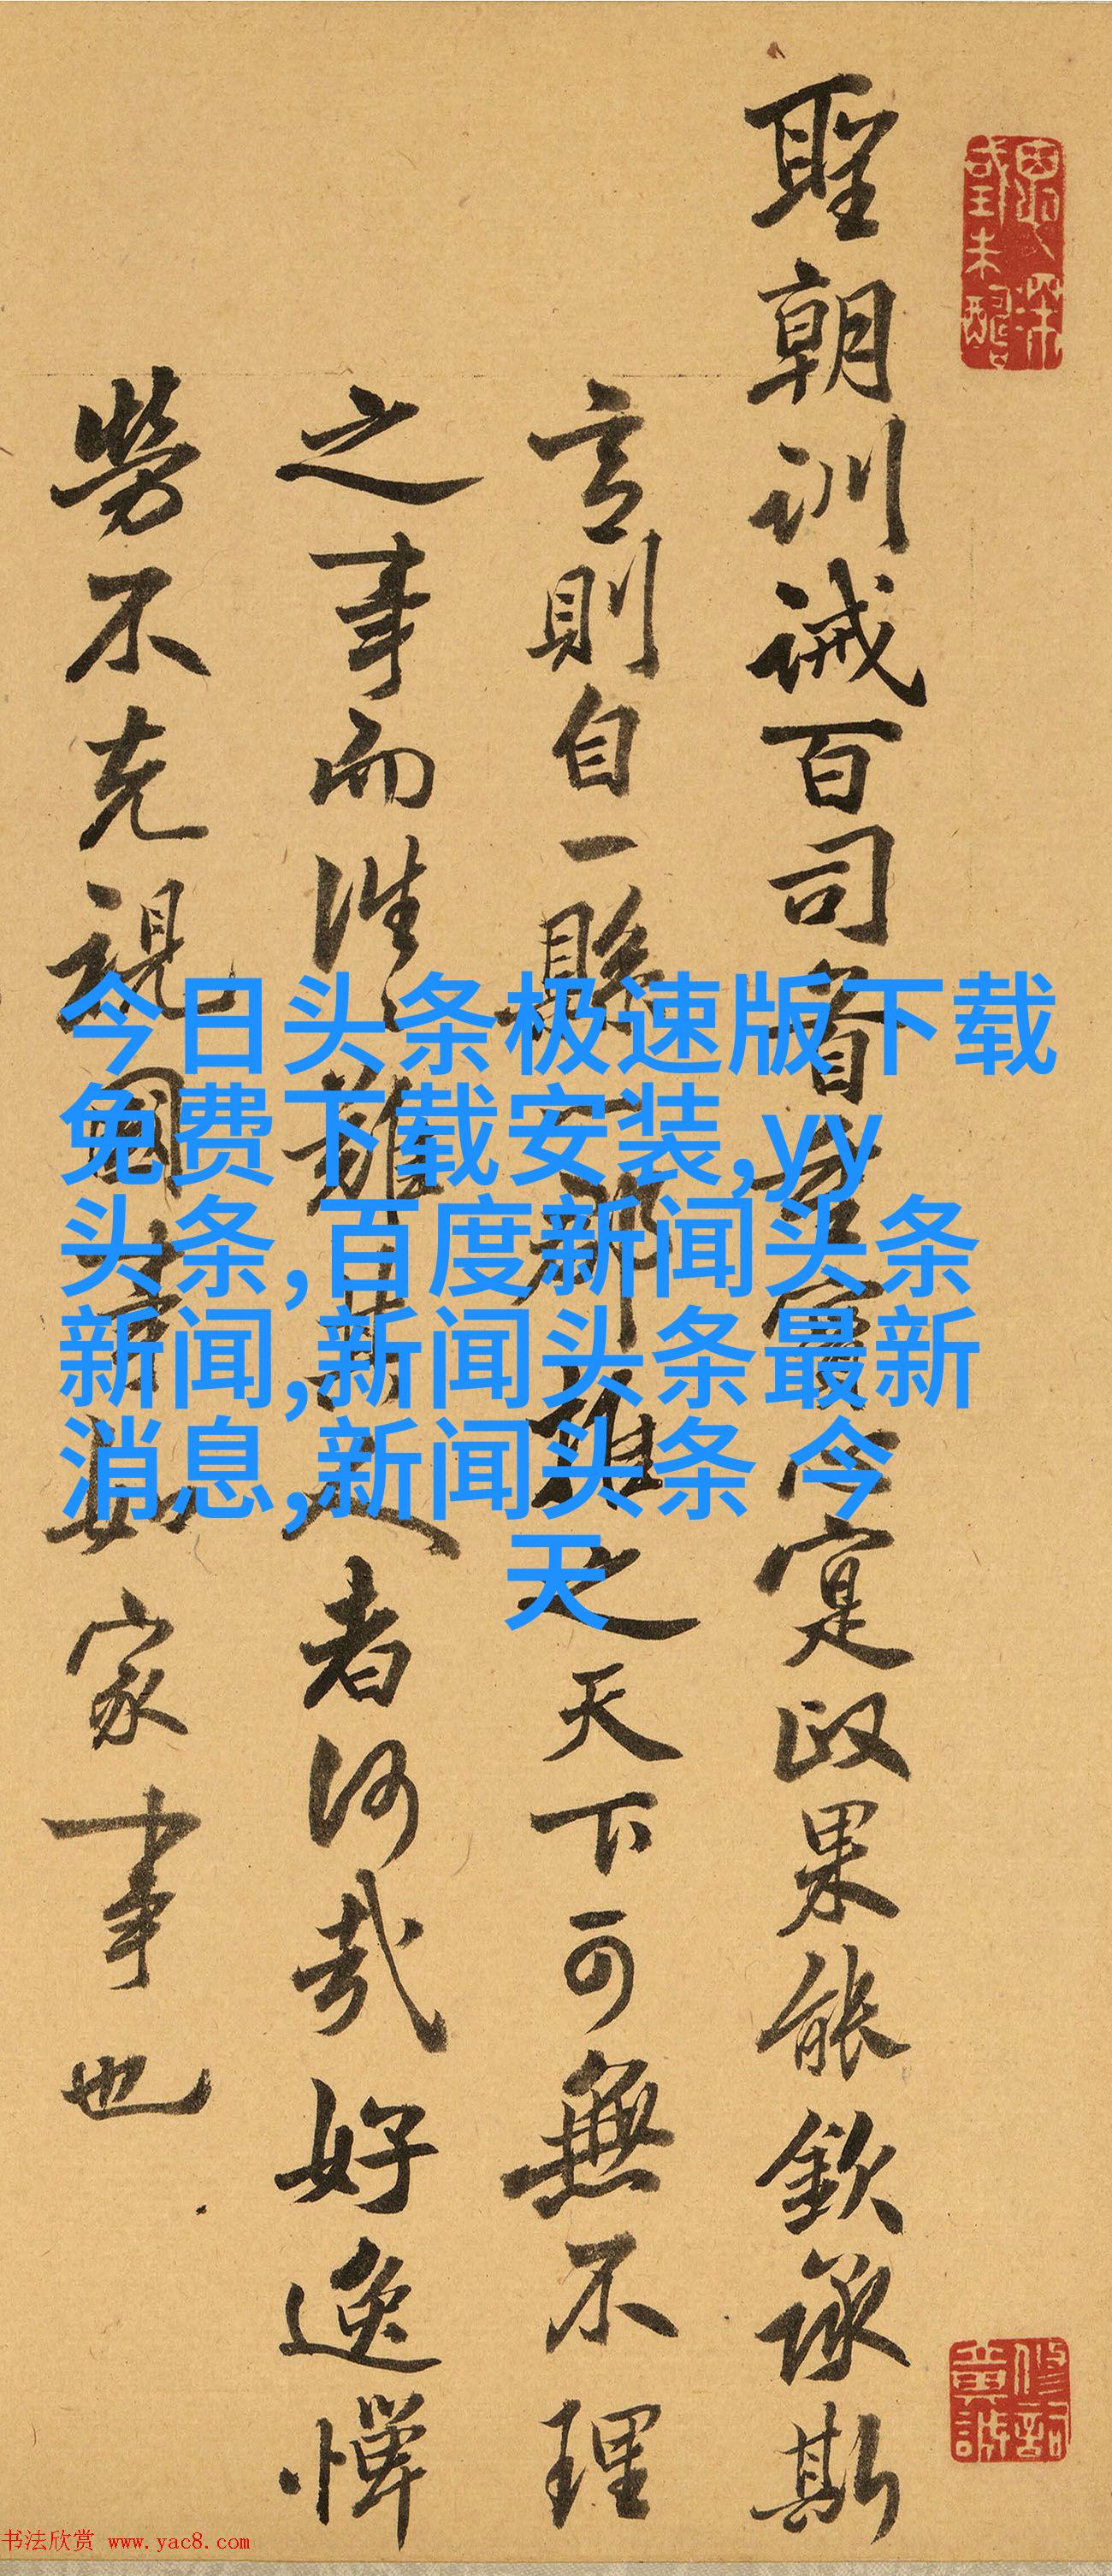 聖朝訓誡百司首言實心寔政果能欽承斯
言則自一縣一郡推之天下可無不理
之事而往々難其人者何哉好逸憚
勞不克視國事如家事也
今日头条极速版下载
免费下载安装,yy
头条,百度新闻头条
新闻,新闻头条最新
消息,新闻头条 今
天
书法欣赏 www.yac8.com